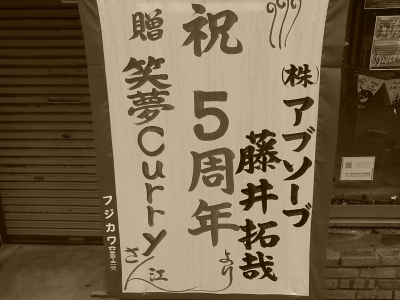 祝
5周年
贈
笑夢Curry
さん江
㈱アブソーブ
藤井拓哉
より
フジカワ